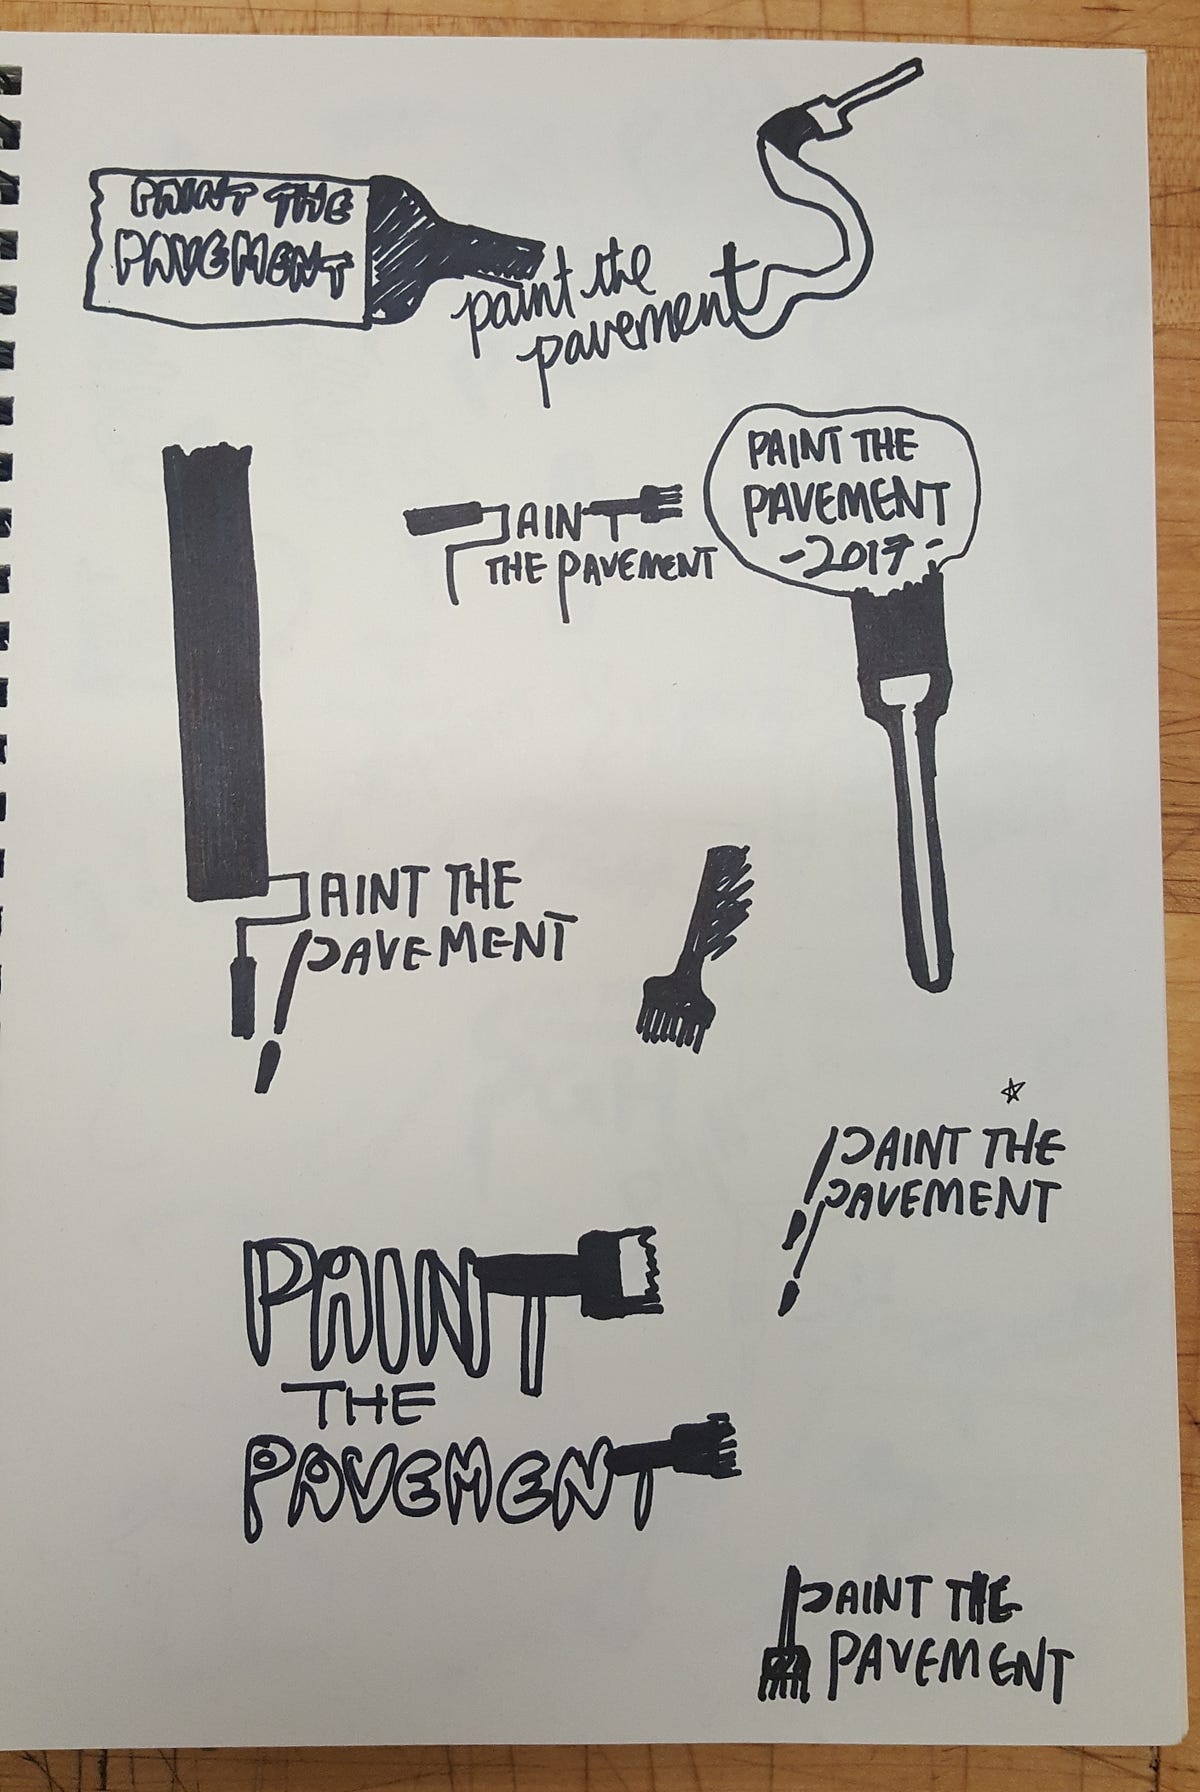 PAINT THE
PAVEMENT
paint the
pavement
PAINT THE
PAVEMENT
-2017-
PAINT
THE PAVEMENT
PAINT THE
PAVEMENT
PAINT THE
PAVEMENT
PAINT
THE
PAVEMENT
PAINT THE
PAVEMENT